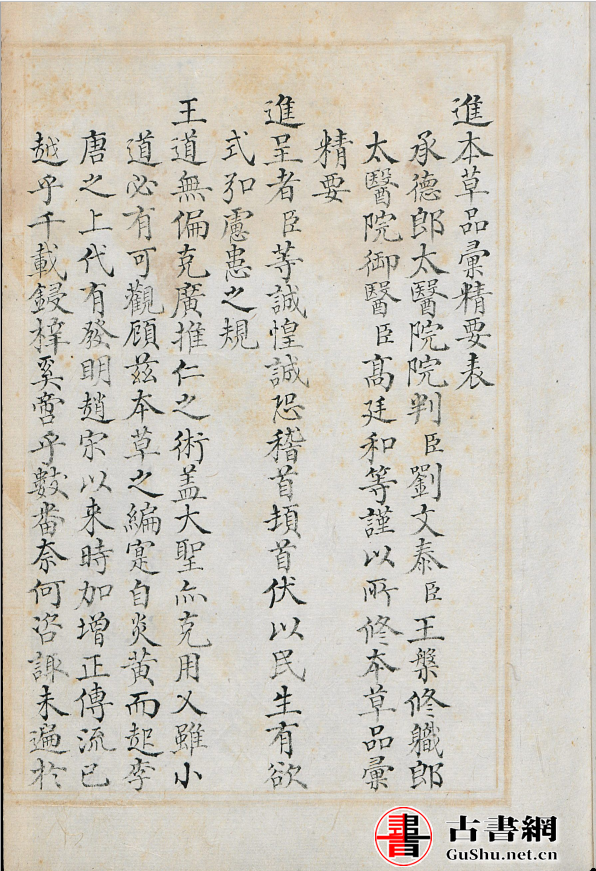 進本草品彙精要表
承德郎太醫院院判臣劉文泰臣王槃修職郎
太醫院御醫臣高廷和等謹以所修本草品彙
精要
進呈者臣等誠惶誠恐稽首頓首伏以民生有欲
式弘慮患之規
王道無偏克廣推仁之術盖大聖亦克用乂雖小
道必有可觀顧茲本草之編寔自炎黄而起李
唐之上代有發明趙宋以来時加增正傳流已
越乎千載鋟梓奚啻乎數畨奈何咨諏未遍於
書
古書網
GuShu.net.cn